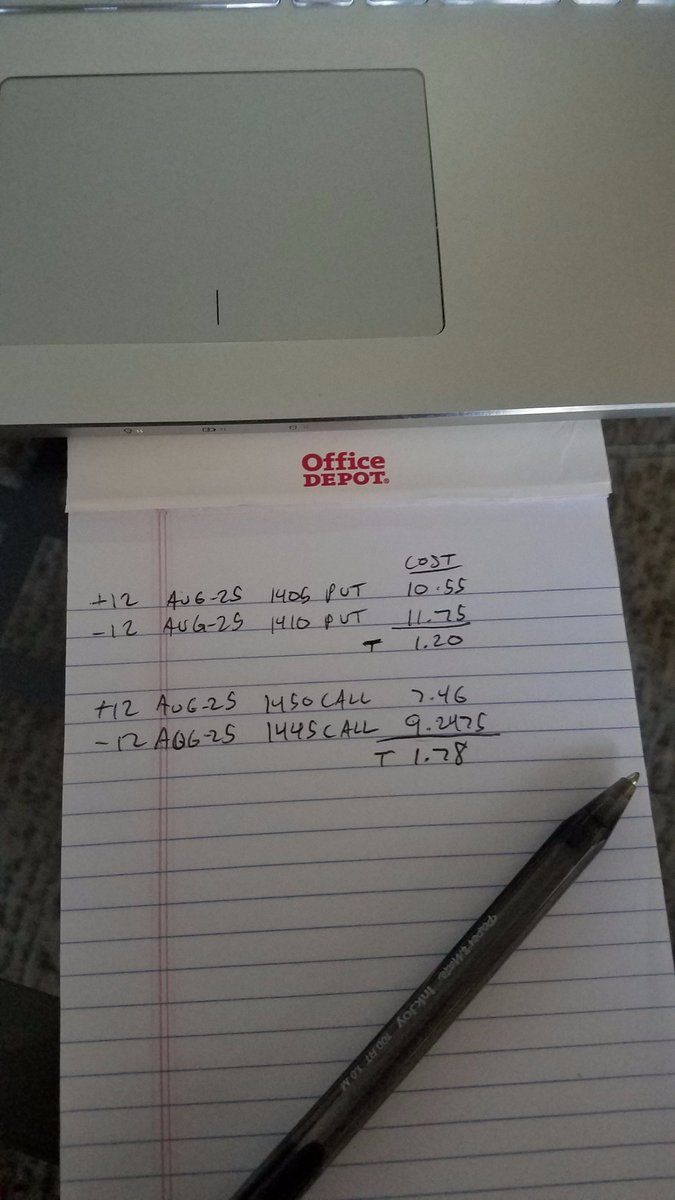 Office
DEPOT®
COST
+12 AUG-25 1405 PUT 10.55
-12 AUG-25 1410 PUT 11.75
T 1.20
+12 AUG-25 1450 CALL 7.46
-12 AUG-25 1445 CALL 9.2475
T 1.78
PaperMate InkJoy 100 RT 1.0 M